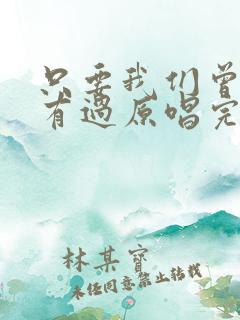 只要我们曾
有过原唱完
林某宝
未经同意禁止转载